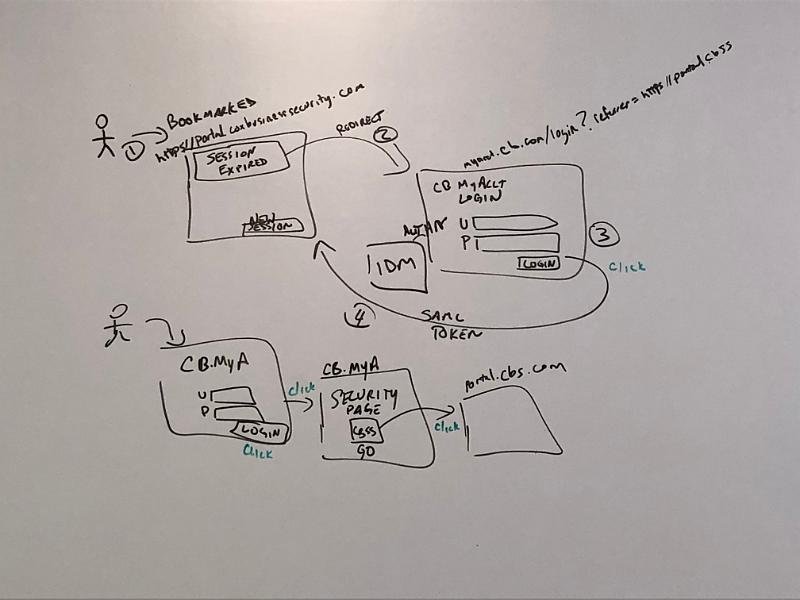 BOOKMARKED
①
https://portal.coxbusinesssecurity.com
SESSION
EXPIRED
NEW
SESSION
REDIRECT
②
myacct.cb.com/login?referrer=https://portal.cbss
CB MyAccT
LOGIN
U
P
LOGIN
③
click
AUTHN
IDM
④
SAML
TOKEN
CB.MyA
U
P
LOGIN
Click
click
CB.MYA
SECURITY
PAGE
CBSS
GO
click
portal.cbs.com